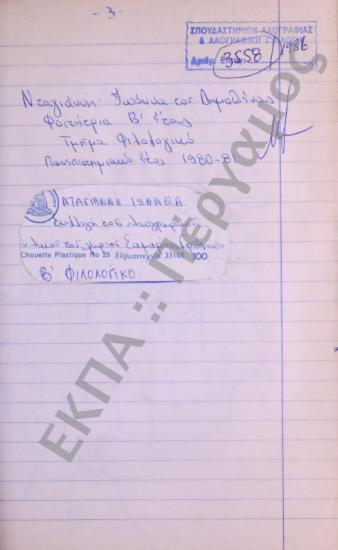 - 3 -
ΣΠΟΥΔΑΣΤΗΡΙΟΝ ΛΑΟΓΡΑΦΙΑΣ
& ΛΑΟΓΡΑΦΙΚΗ ΣΥΛΛΟΓΗ
3558 1986
Νταγιάννη Ιωάννα του Δημοσθένους
Φοιτήτρια Β' έτους
Τμήμα Φιλολογικό
Πανεπιστημιακό έτος 1980-81
ΝΤΑΓΙΑΝΝΗ ΙΩΑΝΝΑ
Συλλογή
υλικού του χωριού
Chouette Plastique No 25 Ευρεσιτεχνία 33160 100
Β' ΦΙΛΟΛΟΓΙΚΟ
ΕΚΠΑ :: Πέργαμος